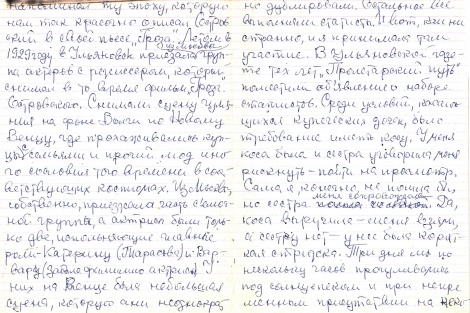 напоминал ту эпоху, которую
нам так красочно описал Остров-
ский в своей пьесе "Гроза". Летом в
1929 году в Ульяновск приезжала груп-
па актеров с режиссером, который
снимал в то время фильм "Гроза"
Островского. Снимали сцену гуля-
ния на фоне Волги по Новому
Венцу, где прохаживались куп-
цы с семьями и прочий люд ино-
го сословия того времени в соот-
ветствующих костюмах. Из Москвы,
собственно, приезжала часть съемоч-
ной группы, а актрис было толь-
ко две, исполняющие главные
роли - Катерину (Тарасова) и Вар-
вару (забыла фамилию актрисы). У
них на Венце была небольшая
сцена, которую они неоднократ-
но дублировали. Остальное все
заполняли статисты. И вот, как ни
странно, и я принимала там
участие. В Ульяновской газе-
те тех лет "Пролетарский путь"
поместили объявление о наборе
статистов. Среди условий, касаю-
щихся купеческих дочек, было
требование иметь косу. У меня
коса была и сестра уговорила меня
рискнуть - пойти на просмотр.
Сама я, конечно, не пошла бы,
но сестра меня сопровождала. Да,
коса выручила - меня взяли,
а сестру нет - у нее была корот-
кая стрижка. Три дня мы по
нескольку часов прогуливались
под солнцепеком и при непре-
менным присутствии на